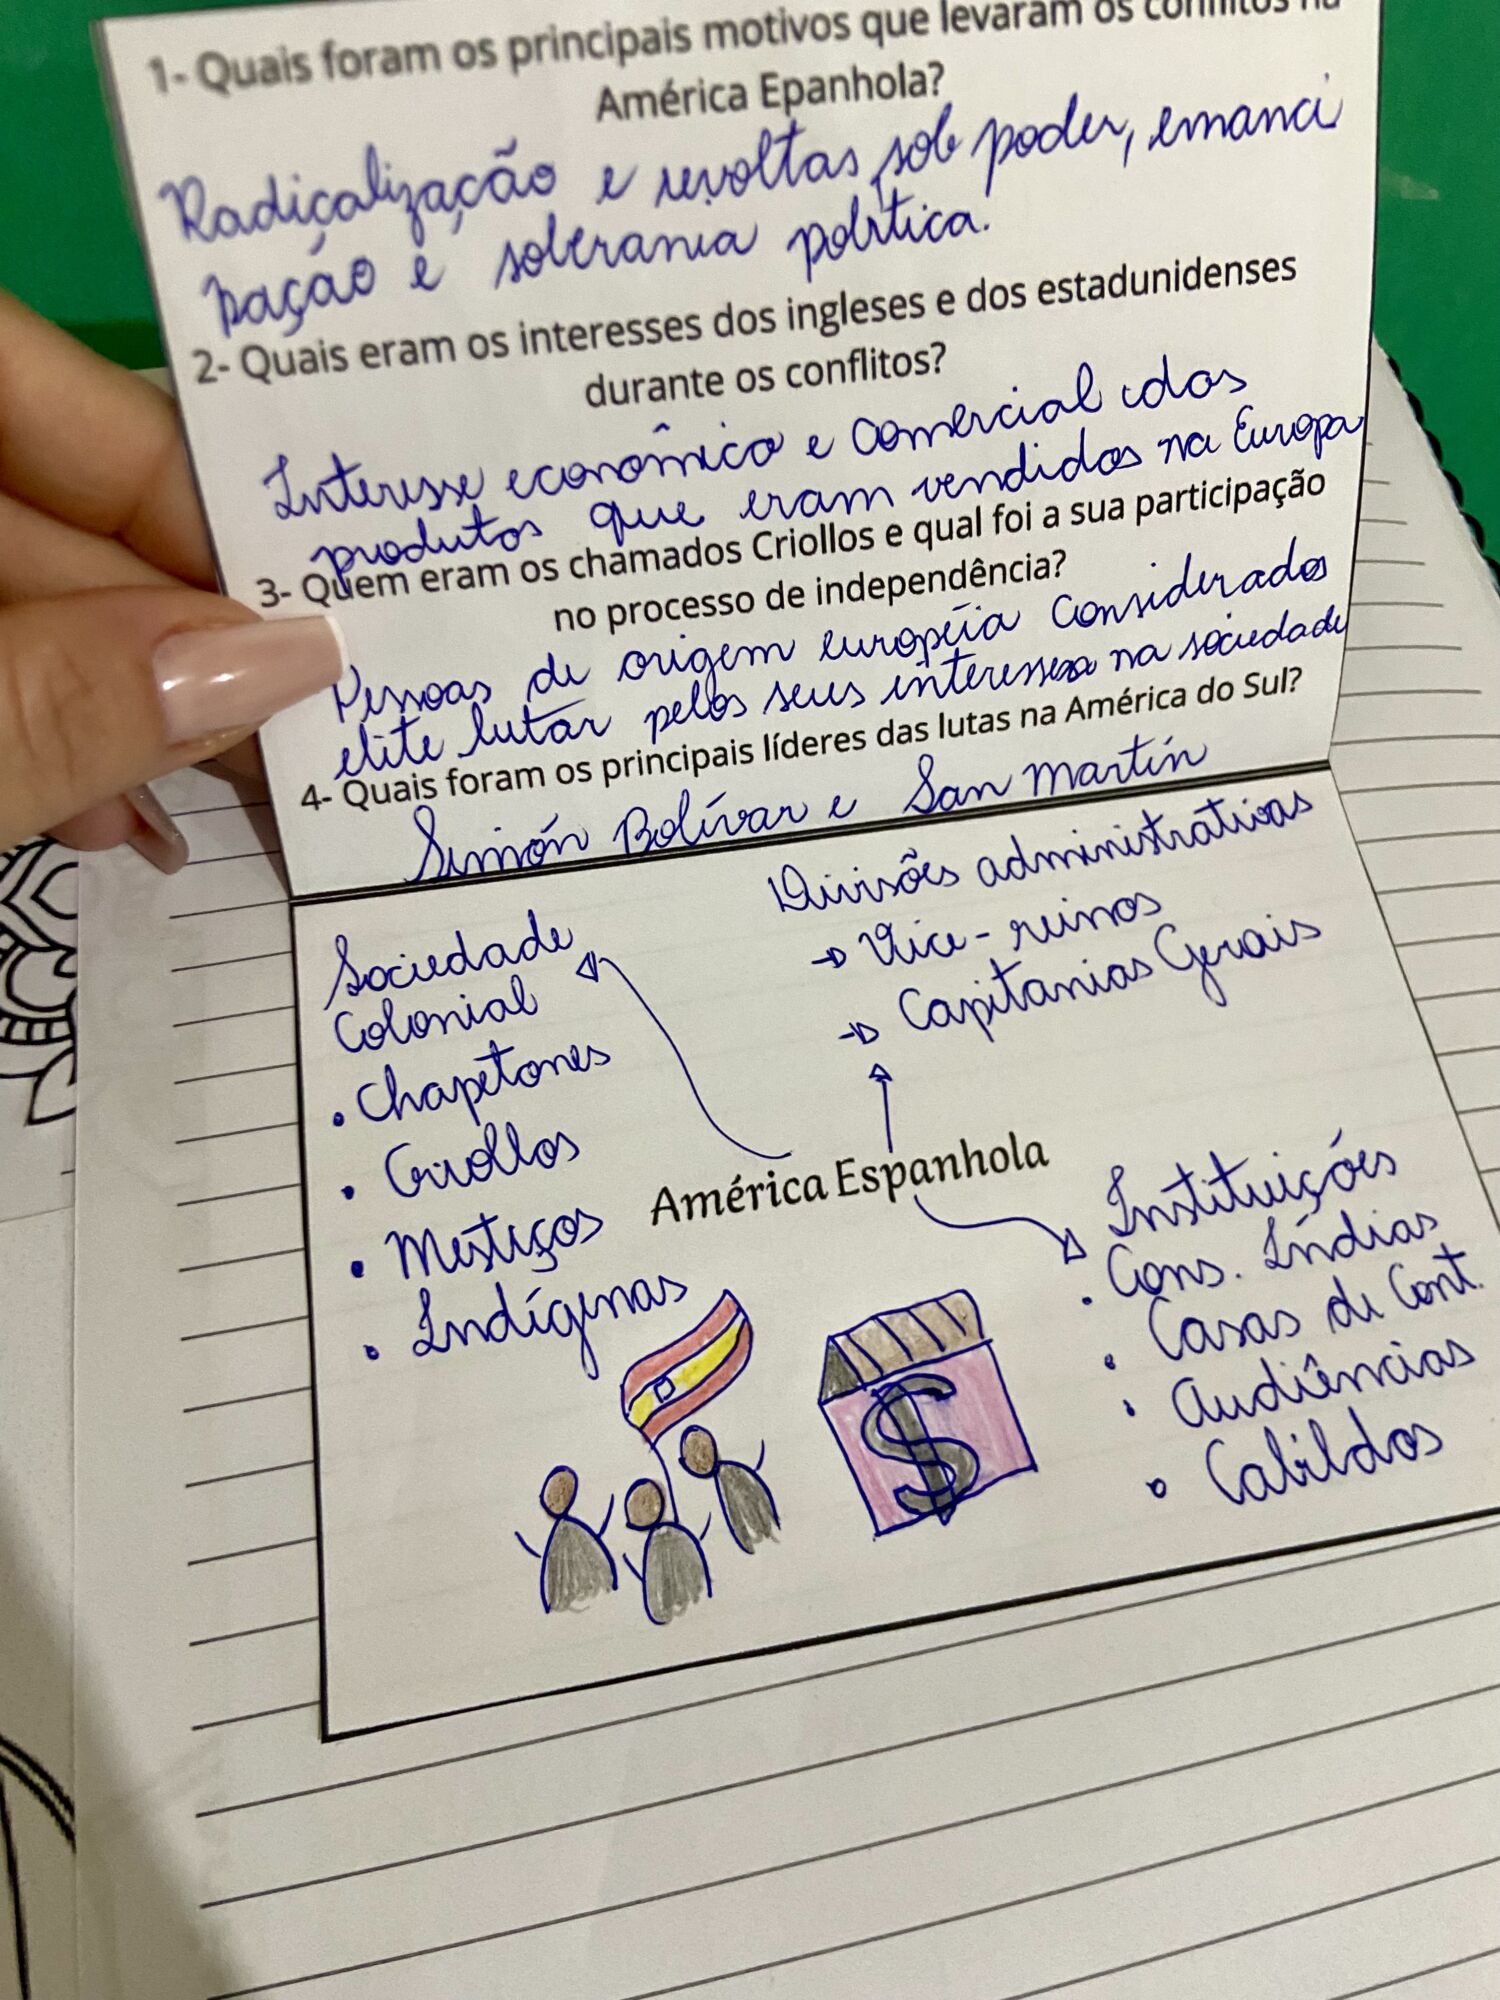 1- Quais foram os principais motivos que levaram os conflitos na
América Epanhola?
Radicalização e revoltas sob poder, emanci
pação e soberania política.
2- Quais eram os interesses dos ingleses e dos estadunidenses
durante os conflitos?
Interesse econômico e comercial dos
produtos que eram vendidos na Europa
3- Quem eram os chamados Criollos e qual foi a sua participação
no processo de independência?
Pessoas de origem européia considerados
elite lutar pelos seus interesses na sociedade
4- Quais foram os principais líderes das lutas na América do Sul?
Simón Bolívar e San Martín
Divisões administrativas
→ Vice-reinos
→ Capitanias Gerais
Sociedade
Colonial
• Chapetones
• Criollos
• Mestiços
• Indígenas
América Espanhola
Instituições
• Cons. Índias
• Casas de Cont.
• Audiências
• Cabildos
$